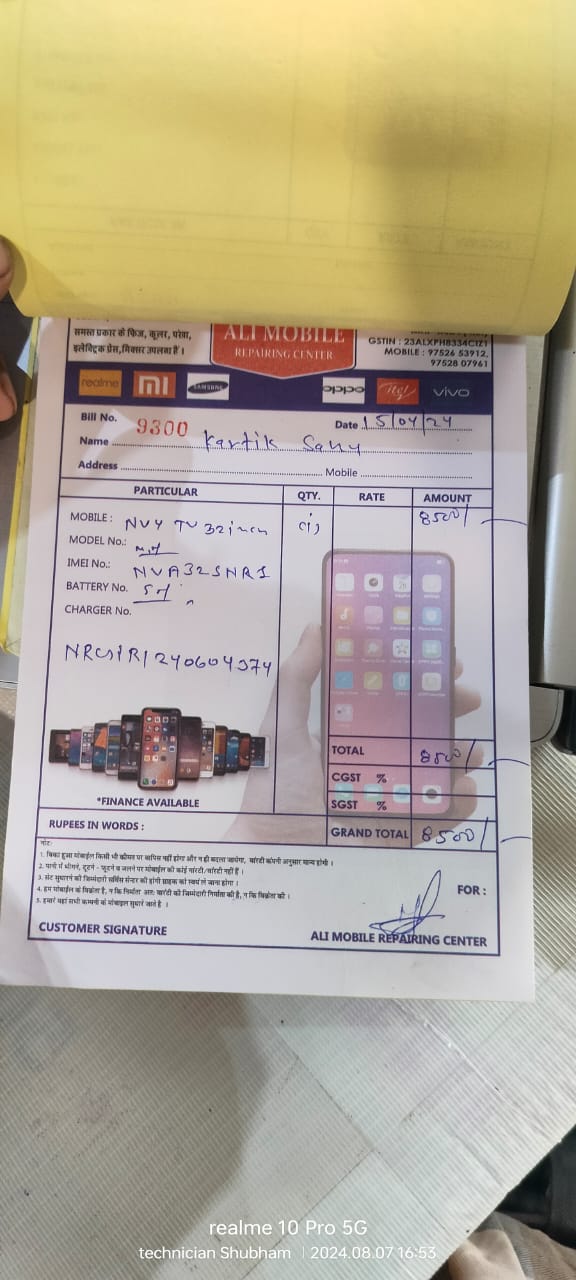 समस्त प्रकार के फ्रिज, कूलर, पंखा,
इलेक्ट्रिक प्रेस,मिक्सर उपलब्ध हैं ।
ALI MOBILE
REPAIRING CENTER
GSTIN : 23ALXPH8334C1Z1
MOBILE : 97526 53912,
97528 07961
realme
MI
SAMSUNG
oppo
itel
vivo
Bill No. 9300
Date 15/04/24
Name Kartik
Address Mobile
PARTICULAR QTY. RATE AMOUNT
MOBILE : NVY TV 32 inch 8500/
MODEL No.:
IMEI No.: NVA32SNRS
BATTERY No.
CHARGER No.
*FINANCE AVAILABLE
TOTAL 8500/
CGST %
SGST %
RUPEES IN WORDS :
GRAND TOTAL 8500/
नोट:
1. बिका हुआ मोबाईल किसी भी कीमत पर वापिस नहीं होगा और न ही बदला जायेगा, वारंटी कंपनी अनुसार मान्य होगी ।
2. पानी में भीगने, टूटने - फूटने व जलने पर मोबाईल की कोई गारंटी/वारंटी नहीं हैं ।
3. सेट सुधारने की जिम्मेदारी सर्विस सेन्टर की होगी ग्राहक को स्वयं ले जाना होगा ।
4. हम मोबाईल के विक्रेता है, न कि निर्माता अतः वारंटी की जिम्मेदारी निर्माता की है, न कि विक्रेता की ।
5. हमारे यहां सभी कम्पनी के मोबाइल सुधारे जाते है ।
FOR :
CUSTOMER SIGNATURE
ALI MOBILE REPAIRING CENTER
realme 10 Pro 5G
technician Shubham | 2024.08.07 16:53